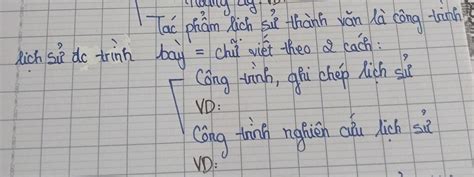 Tác phẩm lịch sử thành văn là công trình
lịch sử dc trình bày = chữ viết theo 2 cách:
Công trình, ghi chép lịch sử
VD:
Công trình nghiên cứu lịch sử
VD: